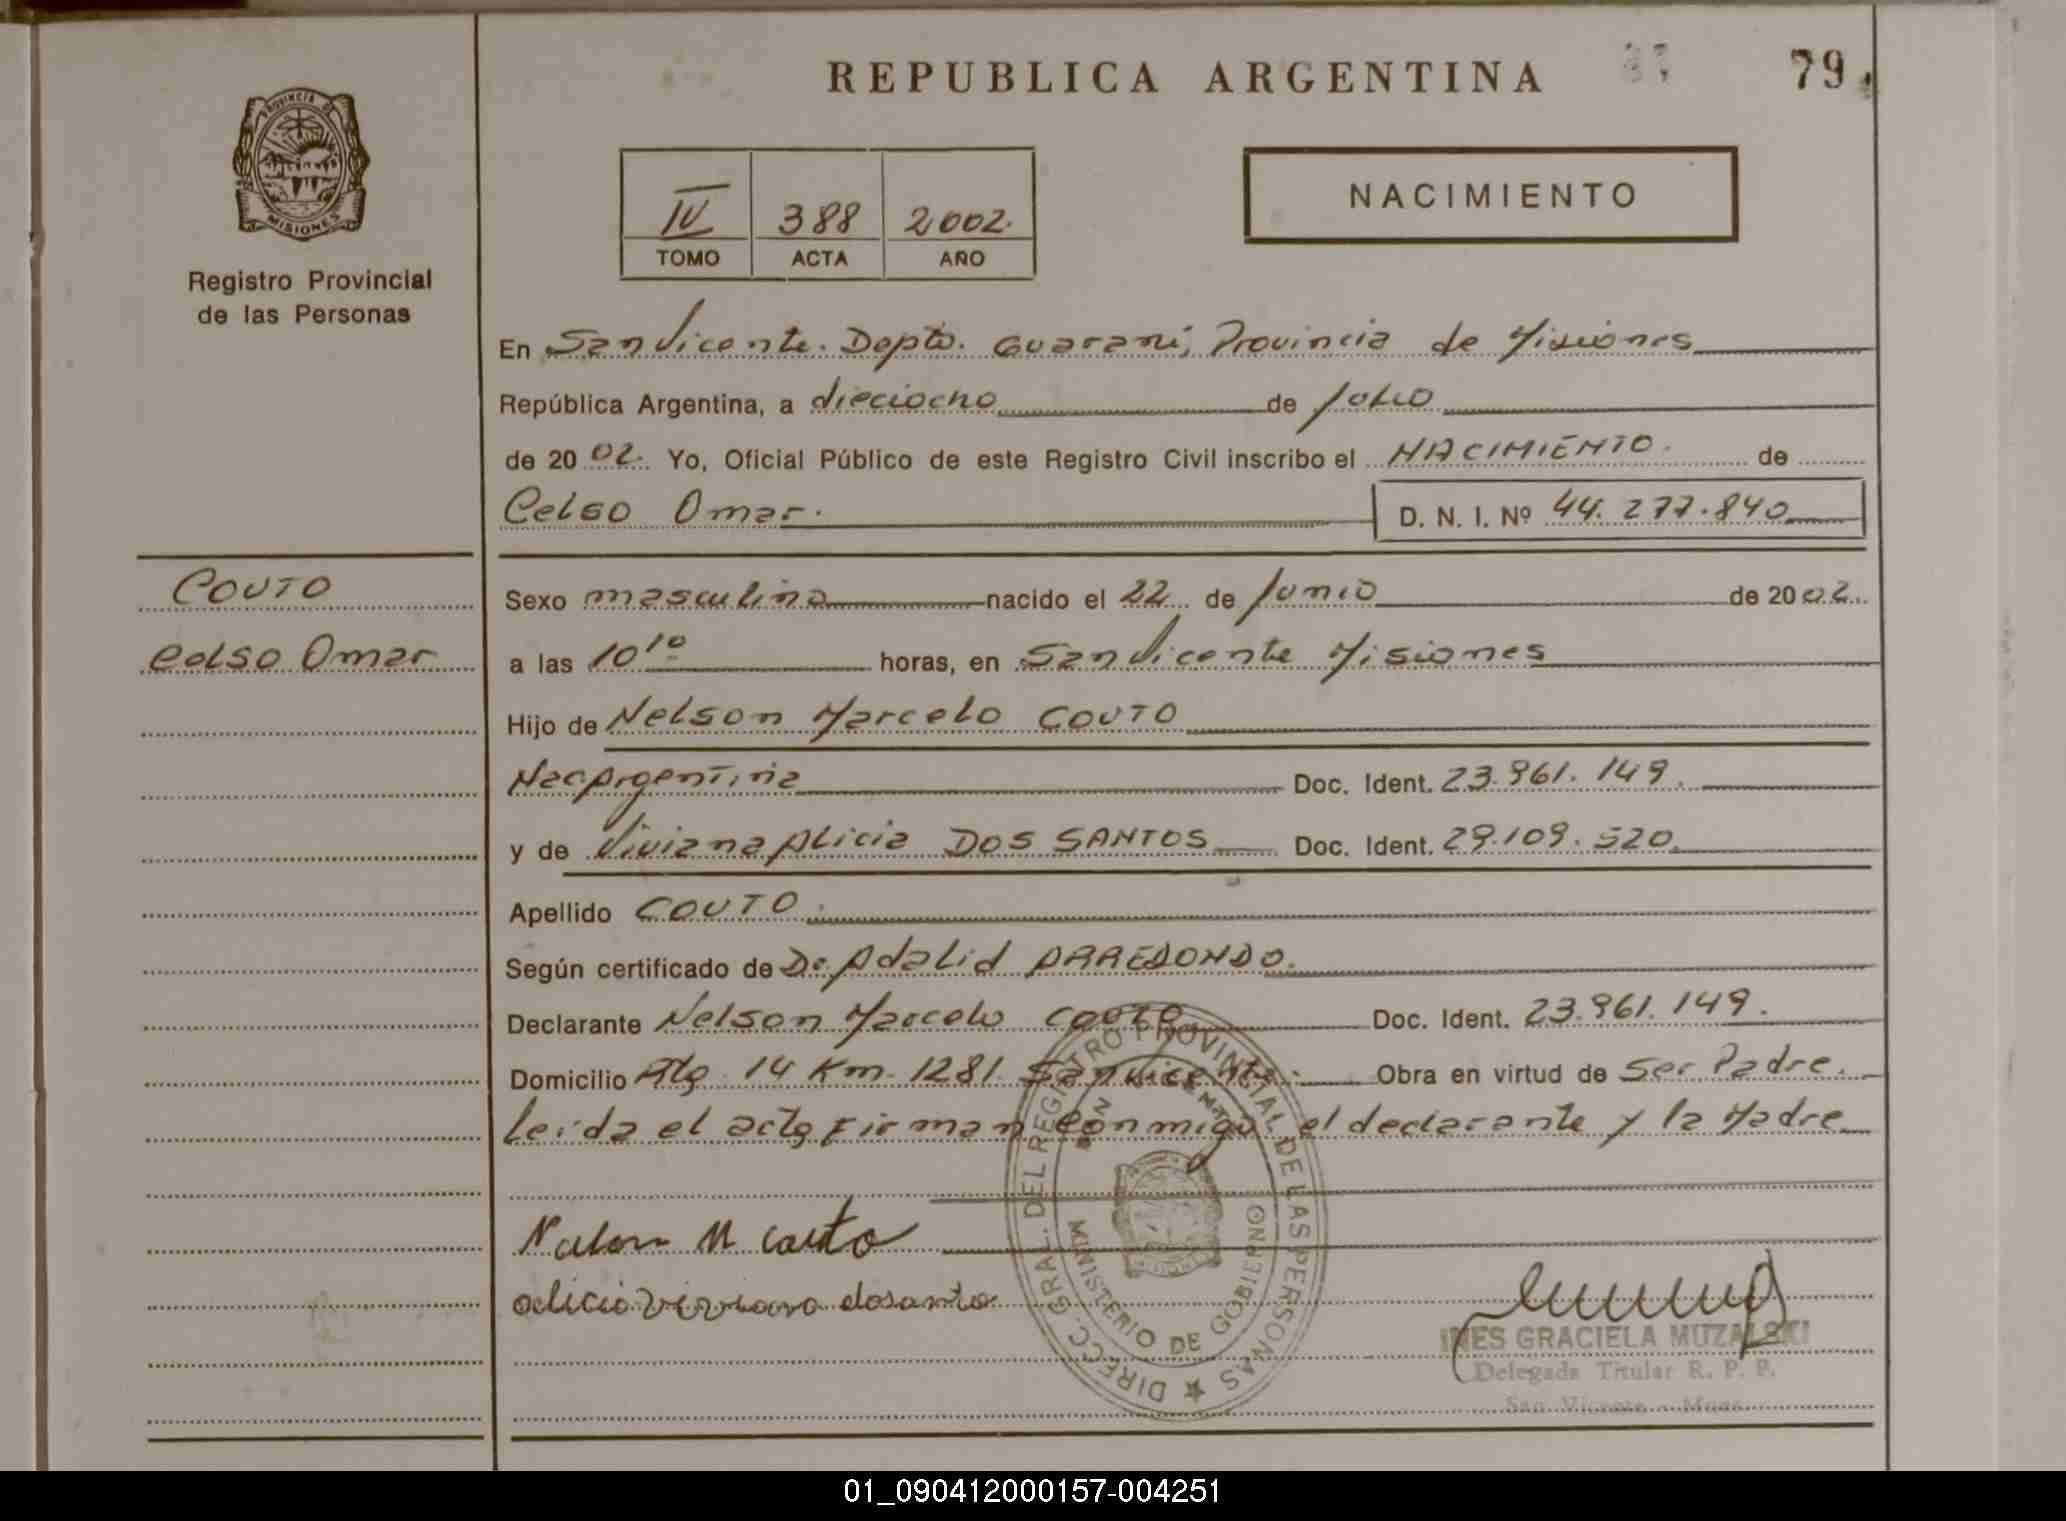 REPUBLICA ARGENTINA
79
PROVINCIA DE
MISIONES
Registro Provincial
de las Personas
IV 388 2002.
TOMO ACTA AÑO
NACIMIENTO
En San Vicente. Depto. Guaraní, Provincia de Misiones
República Argentina, a dieciocho de Julio
de 20 02. Yo, Oficial Público de este Registro Civil inscribo el NACIMIENTO. de
Celso Omar. D. N. I. Nº 44. 277.840
COUTO
Celso Omar
Sexo masculino nacido el 22 de Junio de 2002.
a las 10 10 horas, en San Vicente Misiones
Hijo de Nelson Marcelo COUTO
Nac Argentina Doc. Ident. 23.961.149.
y de Viviana Alicia DOS SANTOS Doc. Ident. 29.109.520.
Apellido COUTO.
Según certificado de Dr. Adalid ARREDONDO.
Declarante Nelson Marcelo COUTO Doc. Ident. 23.961.149.
Domicilio Rta 14 Km. 1281. San Vicente. Obra en virtud de Ser Padre.
Leída el acta Firman conmigo el declarante y la Madre
Nelson M couto
alicia viviana dosanto
DIRECC. GRAL. DEL REGISTRO PROVINCIAL DE LAS PERSONAS
MINISTERIO DE GOBIERNO
INES GRACIELA MUZALSKI
Delegada Titular R. P. P.
San Vicente - Mnes.
01_090412000157-004251